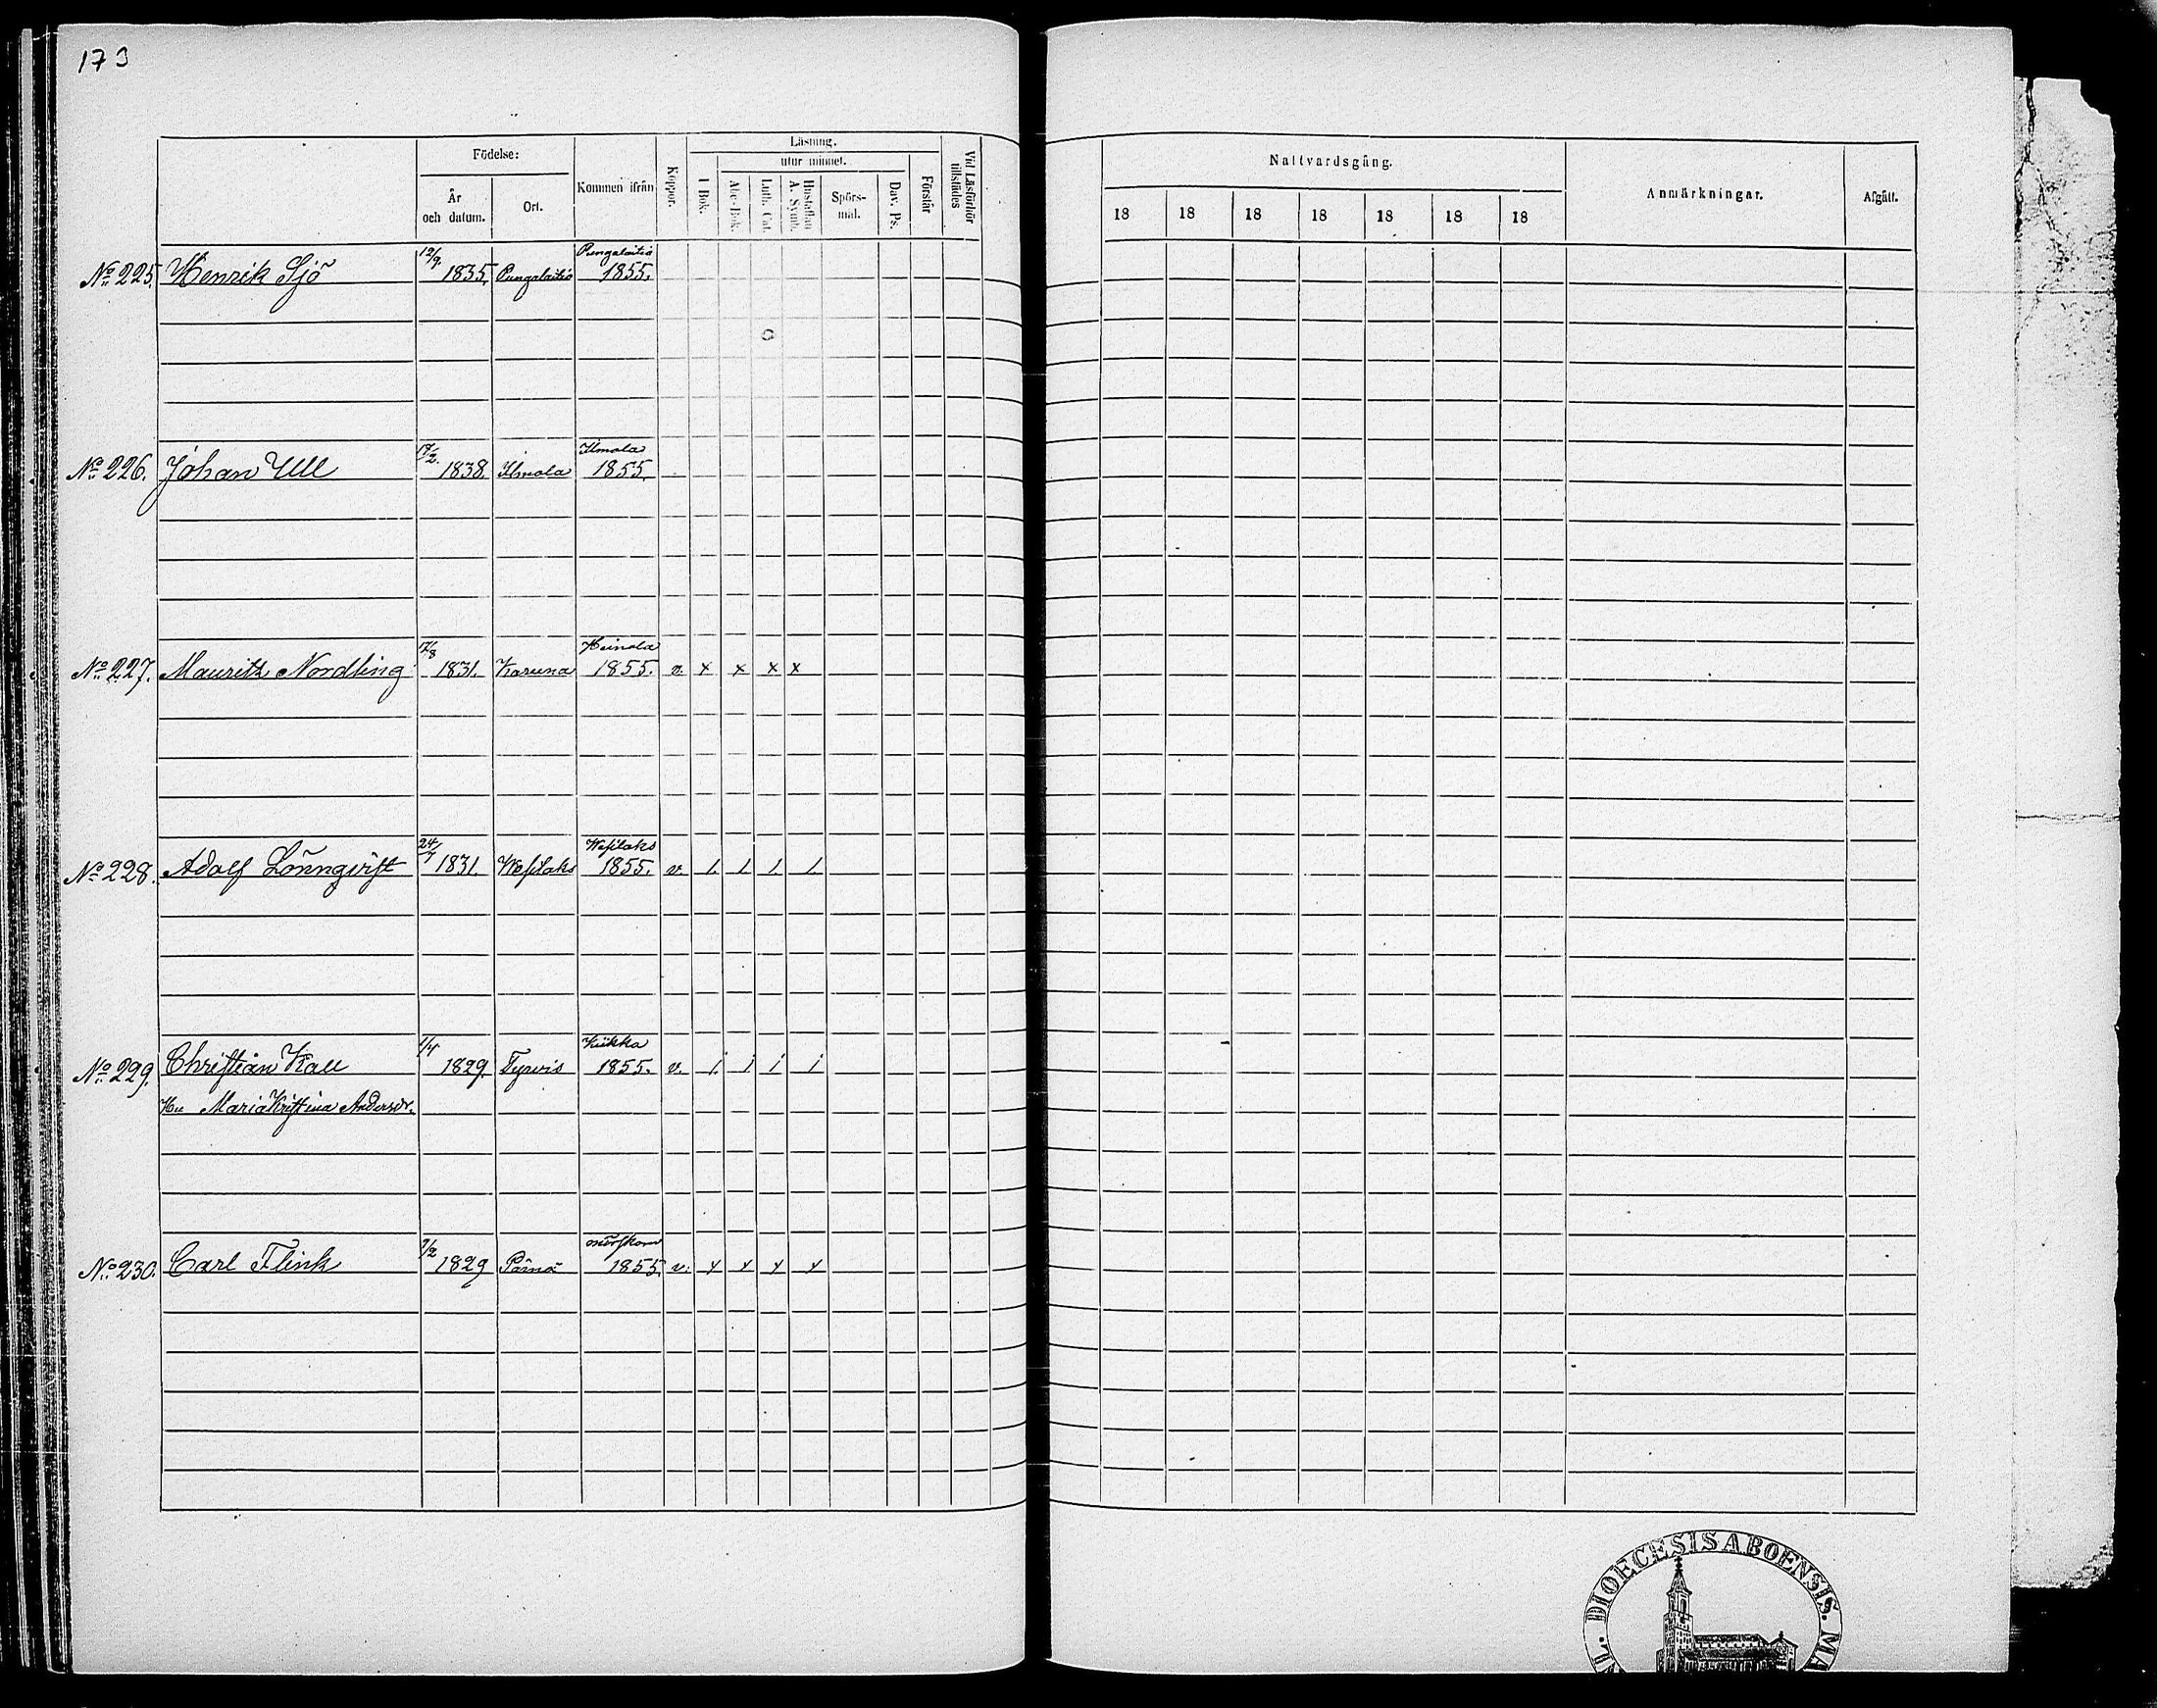 173
Födelse:
År och datum.
Ort.
Kommen ifrån
Koppor.
Läsning.
I Bok.
utur minnet.
Abc-Bok.
Luth. Cat.
Hustaflan A. Symb.
Spörs-mål.
Dav. Ps.
Förstår
Vid Läsförhör tillstädes
Nattvardsgång.
18 18 18 18 18 18 18
Anmärkningar.
Afgått.
12/9. Pungalaitio
No 225. Henrik Sjö 1835. Pungalaitio 1855.
17/2. Ilmola
No 226. Johan Ull 1838. Ilmola 1855.
17/8 Heinola
No 227. Mauritz Nordling 1831. Karuna 1855. v. x x x x
24/7 Wesilaks
No 228. Adolf Lönnqvist 1831. Wesilaks 1855. v. 1. 1 1 1
1/4 Kiikka
No 229. Christian Kall 1829. Tyrvis 1855. v. i i i i
Hu Maria Kristina Andersdr.
7/2 mörskom
No 230. Carl Flink 1829 Pärnå 1855. v. x x x x
DIOECESIS ABOENSIS. MA